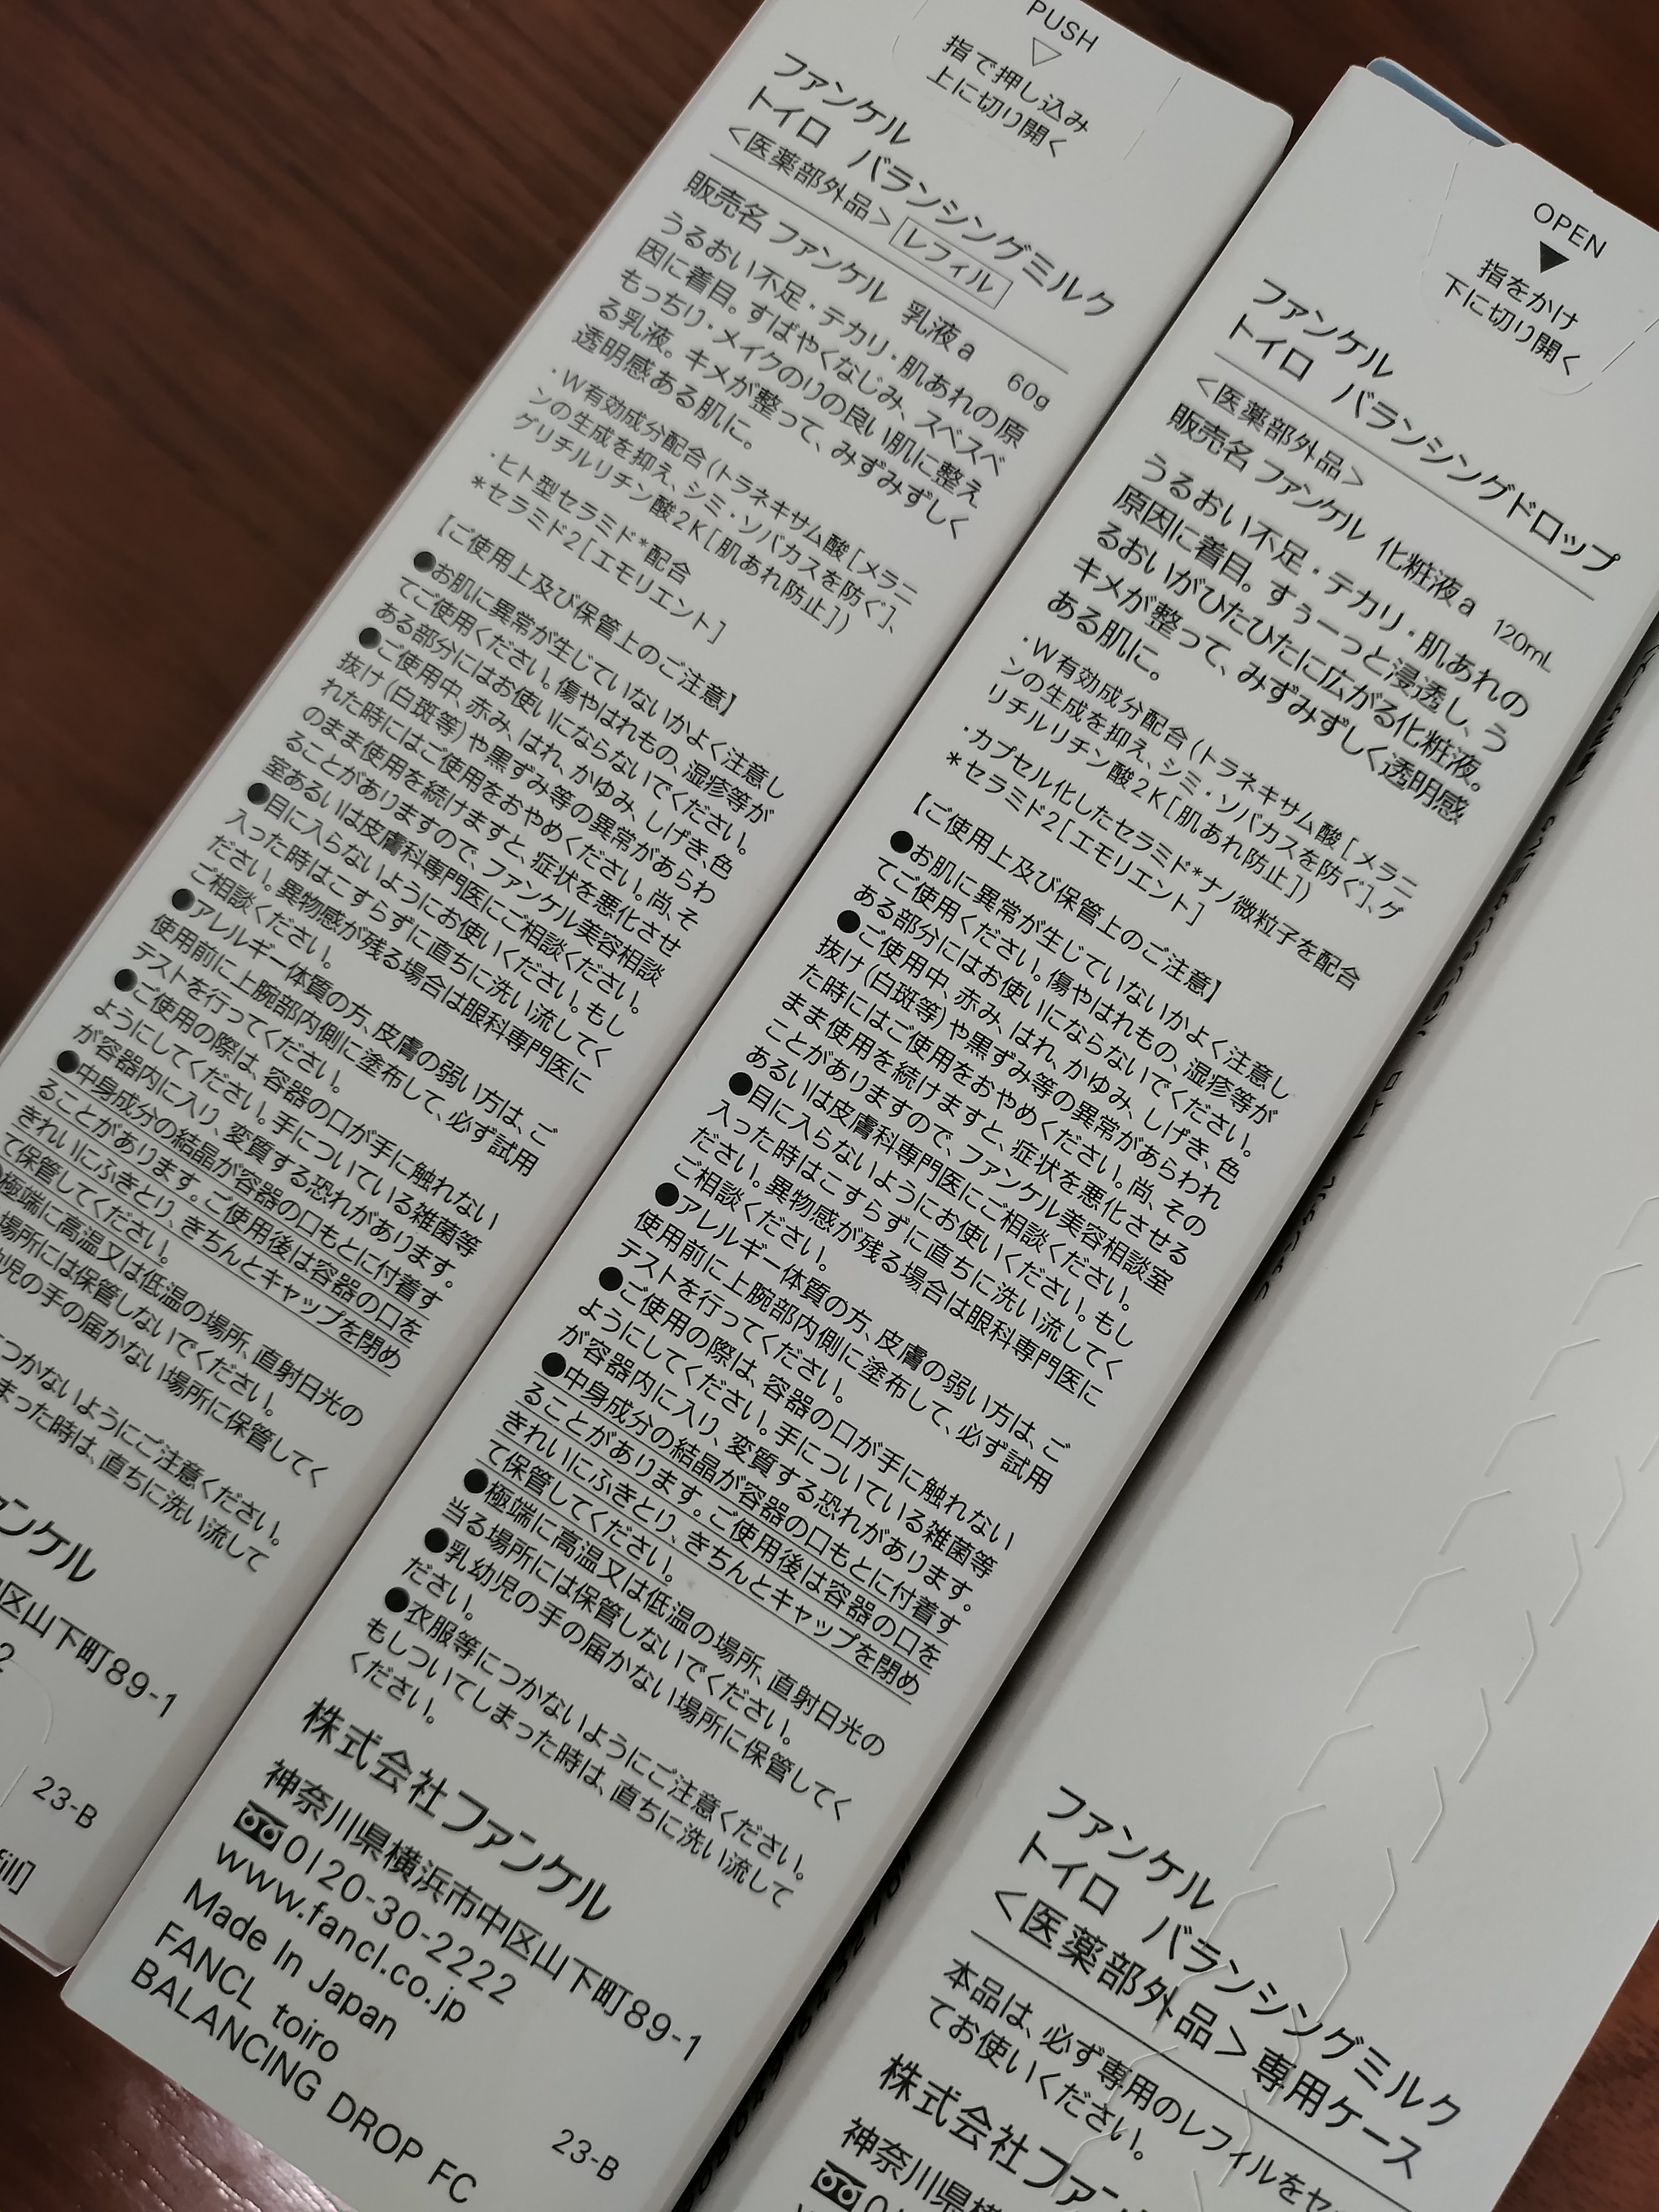 PUSH
指で押し込み
上に切り開く
ファンケル
トイロ バランシングミルク
<医薬部外品> レフィル
販売名 ファンケル 乳液a 60g
うるおい不足・テカリ・肌あれの原
因に着目。すばやくなじみ、スベスベ
もっちり・メイクのりの良い肌に整え
る乳液。キメが整って、みずみずしく
透明感ある肌に。
・W有効成分配合(トラネキサム酸[メラニ
ンの生成を抑え、シミ・ソバカスを防ぐ]、
グリチルリチン酸2K[肌あれ防止])
・ヒト型セラミド*配合
*セラミド2[エモリエント]
【ご使用上及び保管上のご注意】
●お肌に異常が生じていないかよく注意し
てご使用ください。傷やはれもの、湿疹等が
ある部分にはお使いにならないでください。
●ご使用中、赤み、はれ、かゆみ、しげき、色
抜け(白斑等)や黒ずみ等の異常があらわ
れた時にはご使用をおやめください。尚、そ
のまま使用を続けますと、症状を悪化させ
ることがありますので、ファンケル美容相談
室あるいは皮膚科専門医にご相談ください。
●目に入らないようにお使いください。もし
入った時はこすらずに直ちに洗い流してく
ださい。異物感が残る場合は眼科専門医に
ご相談ください。
●アレルギー体質の方、皮膚の弱い方は、ご
使用前に上腕部内側に塗布して、必ず試用
テストを行ってください。
●ご使用の際は、容器の口が手に触れない
ようにしてください。手についている雑菌等
が容器内に入り、変質する恐れがあります。
●中身成分の結晶が容器の口もとに付着す
ることがあります。ご使用後は容器の口を
きれいにふきとり、きちんとキャップを閉め
て保管してください。
極端に高温又は低温の場所、直射日光の
場所には保管しないでください。
幼児の手の届かない場所に保管してく
つかないようにご注意ください。
まった時は、直ちに洗い流して
ァンケル
区山下町89-1
2
23-B
fill]
OPEN
指をかけ
下に切り開く
ファンケル
トイロ バランシングドロップ
<医薬部外品>
販売名 ファンケル 化粧液a 120mL
うるおい不足・テカリ・肌あれの
原因に着目。すぅーっと浸透し、う
るおいがひたひたに広がる化粧液。
キメが整って、みずみずしく透明感
ある肌に。
・W有効成分配合(トラネキサム酸[メラニ
ンの生成を抑え、シミ・ソバカスを防ぐ]、グ
リチルリチン酸2K[肌あれ防止])
・カプセル化したセラミド*ナノ微粒子を配合
*セラミド2[エモリエント]
【ご使用上及び保管上のご注意】
●お肌に異常が生じていないかよく注意し
てご使用ください。傷やはれもの、湿疹等が
ある部分にはお使いにならないでください。
●ご使用中、赤み、はれ、かゆみ、しげき、色
抜け(白斑等)や黒ずみ等の異常があらわれ
た時にはご使用をおやめください。尚、その
まま使用を続けますと、症状を悪化させる
ことがありますので、ファンケル美容相談室
あるいは皮膚科専門医にご相談ください。
●目に入らないようにお使いください。もし
入った時はこすらずに直ちに洗い流してく
ださい。異物感が残る場合は眼科専門医に
ご相談ください。
●アレルギー体質の方、皮膚の弱い方は、ご
使用前に上腕部内側に塗布して、必ず試用
テストを行ってください。
●ご使用の際は、容器の口が手に触れない
ようにしてください。手についている雑菌等
が容器内に入り、変質する恐れがあります。
●中身成分の結晶が容器の口もとに付着す
ることがあります。ご使用後は容器の口を
きれいにふきとり、きちんとキャップを閉め
て保管してください。
●極端に高温又は低温の場所、直射日光の
当る場所には保管しないでください。
●乳幼児の手の届かない場所に保管してく
ださい。
●衣服等につかないようにご注意ください。
もしついてしまった時は、直ちに洗い流して
ください。
株式会社ファンケル
神奈川県横浜市中区山下町89-1
0120-30-2222
www.fancl.co.jp
Made In Japan
FANCL toiro
BALANCING DROP FC
23-B
ファンケル
トイロ バランシングミルク
<医薬部外品>専用ケース
本品は、必ず専用のレフィルをセ
てお使いください。
株式会社ファ
神奈川県横